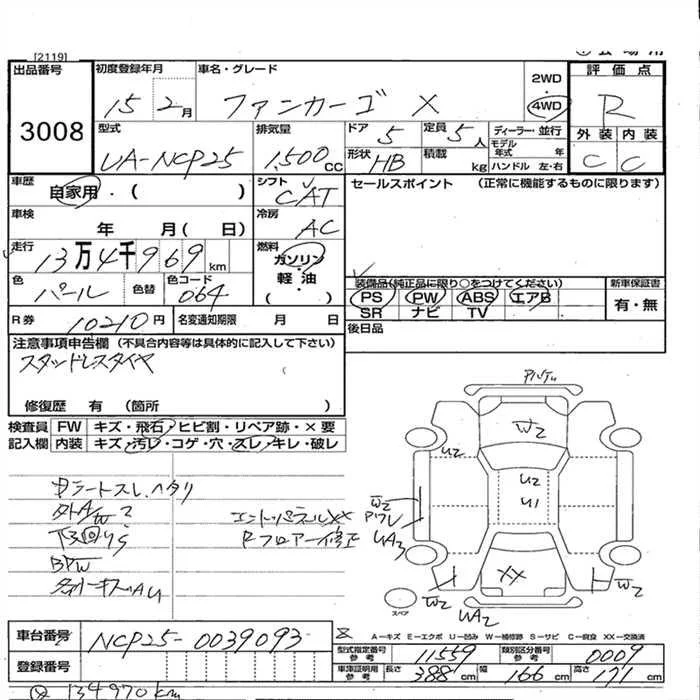 [2119]
出品番号 初度登録年月 車名・グレード 2WD 評価点
3008 15 2月 ファンカーゴ X 4WD R
型式 排気量 ドア 定員 ディーラー・並行 外装 内装
UA-NCP25 1,500 CC 5 5人 モデル年式 年 C C
形状 HB 積載 kg ハンドル 左・右
車歴 自家用・( ) シフト CAT セールスポイント (正常に機能するものに限ります)
車検 年 月( 日) 冷房 AC
走行 13万4千969km 燃料 ガソリン・軽油 ( )
色 パール 色替 色コード 064
装備品(純正品に限り○をつけてください) 新車保証書
PS PW ABS エアB 有・無
SR ナビ TV
R券 10210円 名変通知期限 月 日 後日品
注意事項申告欄 (不具合内容等は具体的に記入して下さい)
スタッドレスタイヤ
修復歴 有 (箇所 )
検査員記入欄 FW キズ・飛石・ヒビ割・リペア跡・×要
内装 キズ・汚レ・コゲ・穴・スレ・キレ・破レ
W2
U2
U2
U1
W2
UA3
XX
W2
W2
UA2
スペア
エンドパネルXX
Fフロアー修正
BPW
A—キズ E—エクボ U—凹み W—補修跡 S—サビ C—腐食 XX—交換済
車台番号 NCP25-0039093
型式指定番号 参考 11559 類別区分番号 参考 0009
登録番号
車庫証明用 参考 長さ 388cm 幅 166cm 高さ 171cm
134970km